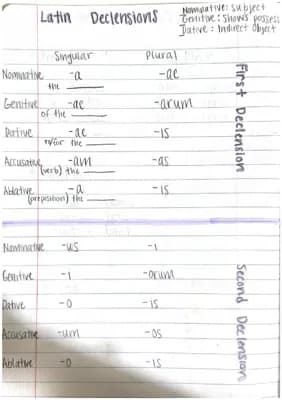 Latin Declensions
Nominative: subject
Genitive: shows possess
Dative: Indirect Object
Singular Plural
Nominative -a -ae
the
Genitive -ae -arum
of the
Dative -ae -is
to/for the
Accusative -am -as
(verb) the
Ablative -a -is
(preposition) the
First Declension
Nominative -us -i
Genitive -i -orum
Dative -o -is
Accusative -um -os
Ablative -o -is
Second Declension